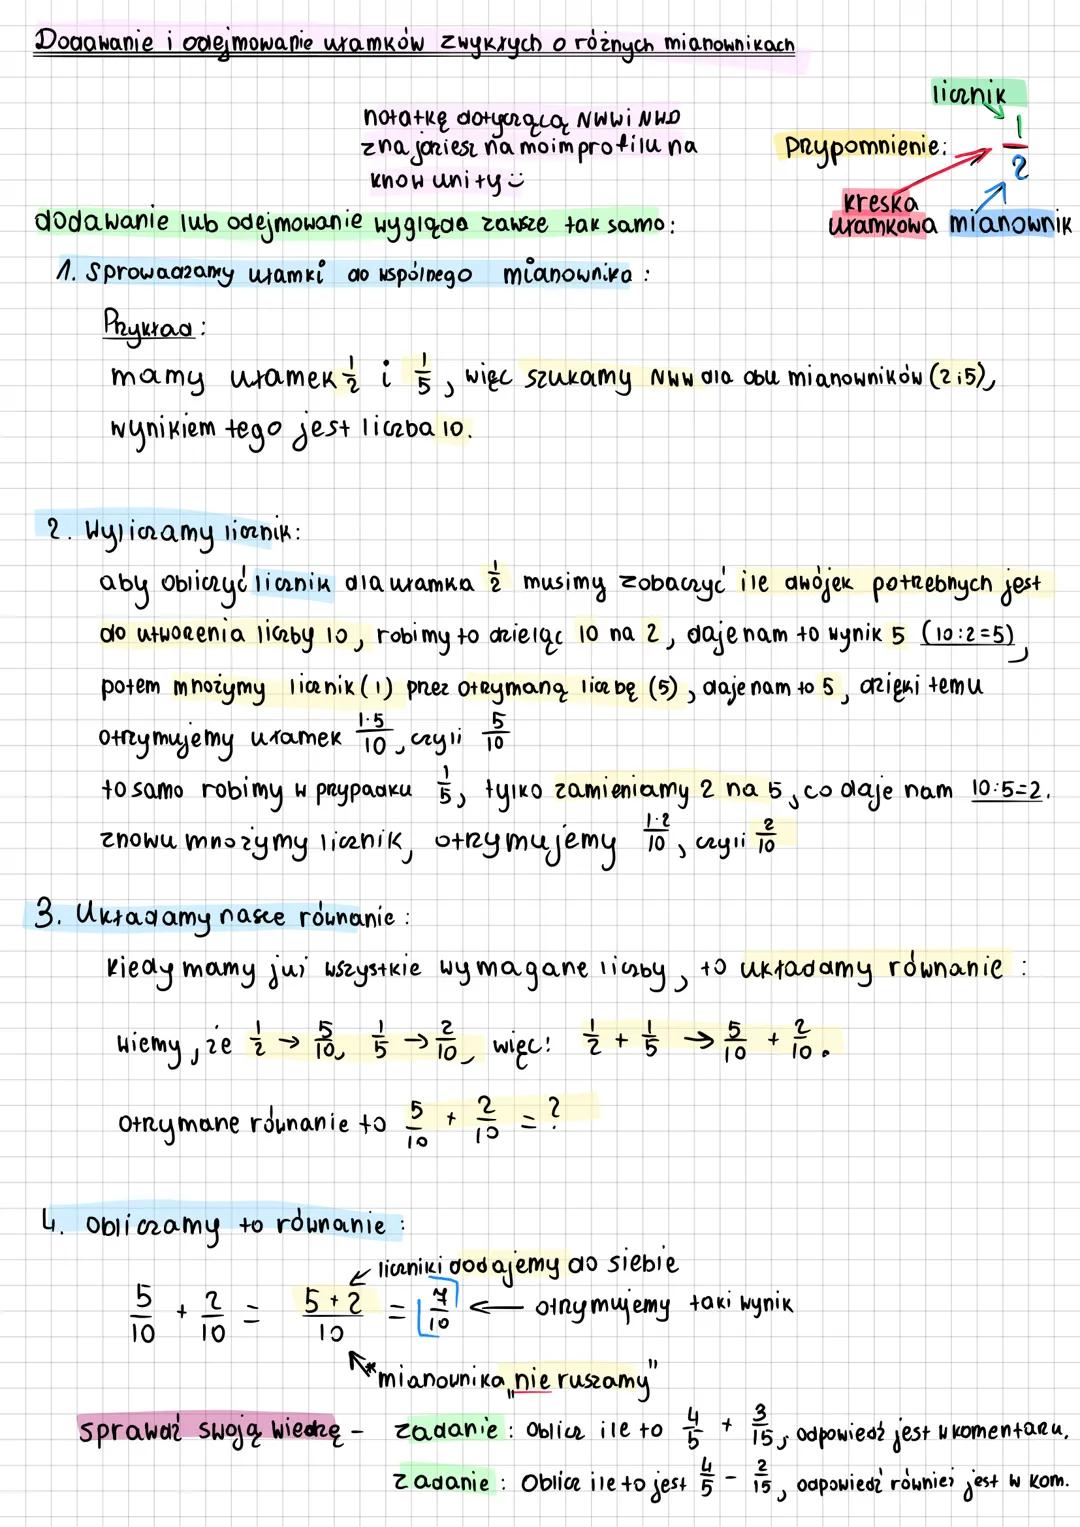 Dodawanie i odejmowanie ułamków zwykłych o różnych mianownikach
licznik
notatkę dotyczącą NWW i NWD
znajdziesz na moim profilu na
know unity :)
Przypomnienie: 1/2
kreska
ułamkowa mianownik
dodawanie lub odejmowanie wygląda zawsze tak samo:
1. Sprowadzamy ułamki do wspólnego mianownika:
Przykład:
mamy ułamek 1/2 i 1/5, więc szukamy NWW dla obu mianowników (2 i 5),
wynikiem tego jest liczba 10.
2. Wyliczamy licznik:
aby obliczyć licznik dla ułamka 1/2 musimy zobaczyć ile dwójek potrzebnych jest
do utworzenia liczby 10, robimy to dzieląc 10 na 2, daje nam to wynik 5 (10:2=5),
potem mnożymy licznik (1) przez otrzymaną liczbę (5), daje nam to 5, dzięki temu
otrzymujemy ułamek 1·5/10, czyli 5/10
to samo robimy w przypadku 1/5, tylko zamieniamy 2 na 5, co daje nam 10:5=2.
znowu mnożymy licznik, otrzymujemy 1·2/10, czyli 2/10
3. Układamy nasze równanie:
Kiedy mamy już wszystkie wymagane liczby, to układamy równanie:
Wiemy, że 1/2 → 5/10, 1/5 → 2/10, więc: 1/2 + 1/5 → 5/10 + 2/10.
Otrzymane równanie to 5/10 + 2/10 = ?
4. Obliczamy to równanie:
liczniki dodajemy do siebie
5/10 + 2/10 = 5+2/10 = 7/10 ← otrzymujemy taki wynik
*mianownika „nie ruszamy"
sprawdź swoją wiedzę - zadanie: Oblicz ile to 4/5 + 3/15, odpowiedź jest w komentarzu.
zadanie: Oblicz ile to jest 4/5 - 2/15, odpowiedź również jest w kom.